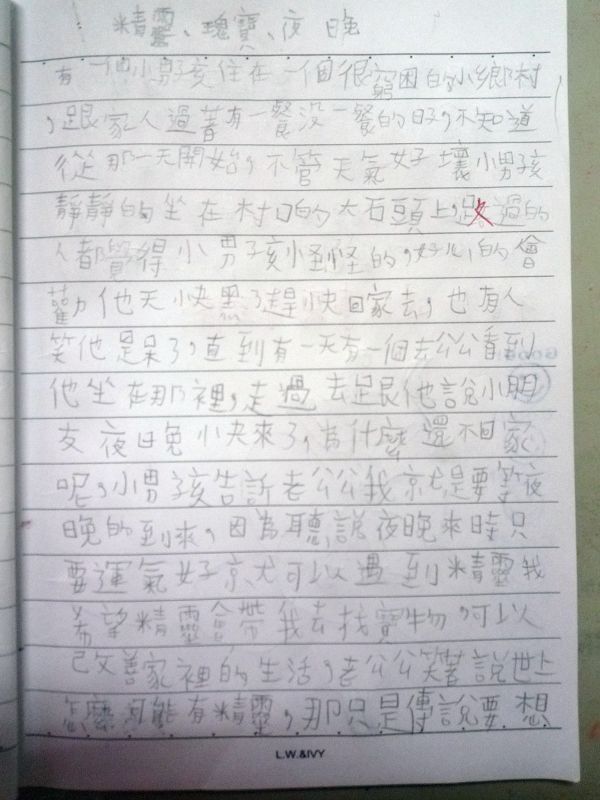 精靈、瑰寶、夜晚
有一個小男孩住在一個很窮困的小鄉村
，跟家人過著有一餐沒一餐的日子，不知道
從那一天開始，不管天氣好壞小男孩
靜靜的坐在村口的大石頭上，過的
人都覺得小男孩怪怪的，好心的會
勸他天快黑了趕快回家去，也有人
笑他是呆子，直到有一天有一個老公公看到
他坐在那裡，走過去跟他說小朋
友夜晚快來了，為什麼還不回家
呢，小男孩告訴老公公我就是要等夜
晚的到來，因為聽說夜晚來時只
要運氣好就可以遇到精靈我
希望精靈會帶我去找寶物，可以
改善家裡的生活，老公公笑著說世上
怎麼可能有精靈，那只是傳說要想
L.W.&IVY